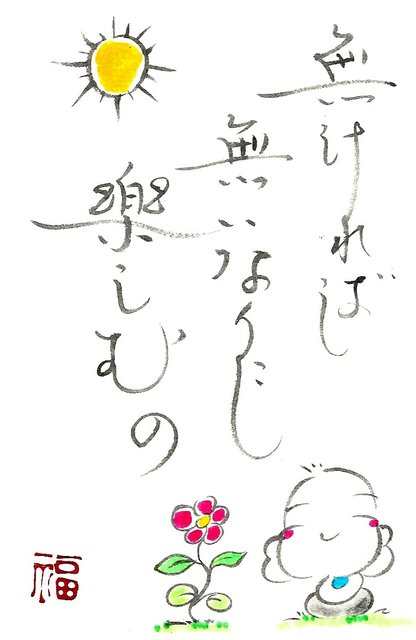 無ければ
無いなりに
楽しむの
福